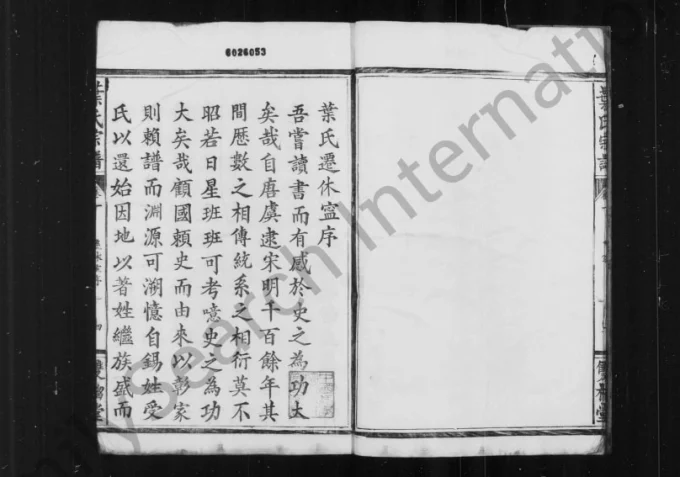 6026053
葉氏遷休寍序
吾嘗讀書而有感於史之為功大
矣哉自唐虞逮宋明千百餘年其
間歷數之相傳統系之相衍莫不
昭若日星班班可考噫史之為功
大矣哉顧國賴史而由來以彰家
則賴譜而淵源可溯憶自錫姓受
氏以還始因地以著姓繼族盛而
葉氏宗譜
葉氏宗譜
FamilySearch International